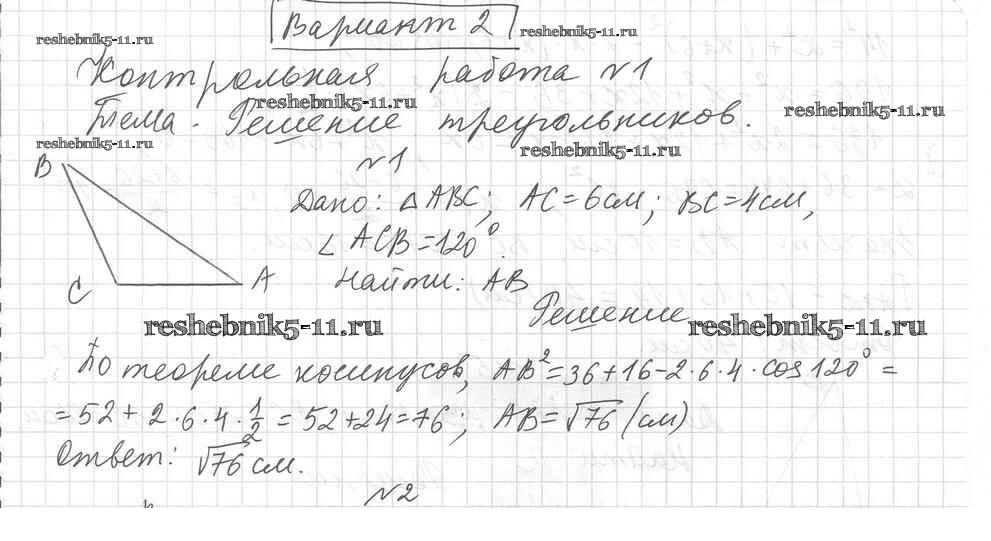 Вариант 2
reshebnik5-11.ru
reshebnik5-11.ru
Контрольная работа №1
reshebnik5-11.ru
reshebnik5-11.ru
Тема. Решение треугольников.
reshebnik5-11.ru
reshebnik5-11.ru
№1
B
Дано: △ABC; AC=6см; BC=4см,
∠ACB=120°.
C
A
Найти: AB
Решение
reshebnik5-11.ru
reshebnik5-11.ru
По теореме косинусов, AB²=36+16-2·6·4·cos120°=
=52+2·6·4·1/2=52+24=76; AB=√76 (см)
Ответ: √76 см.
№2